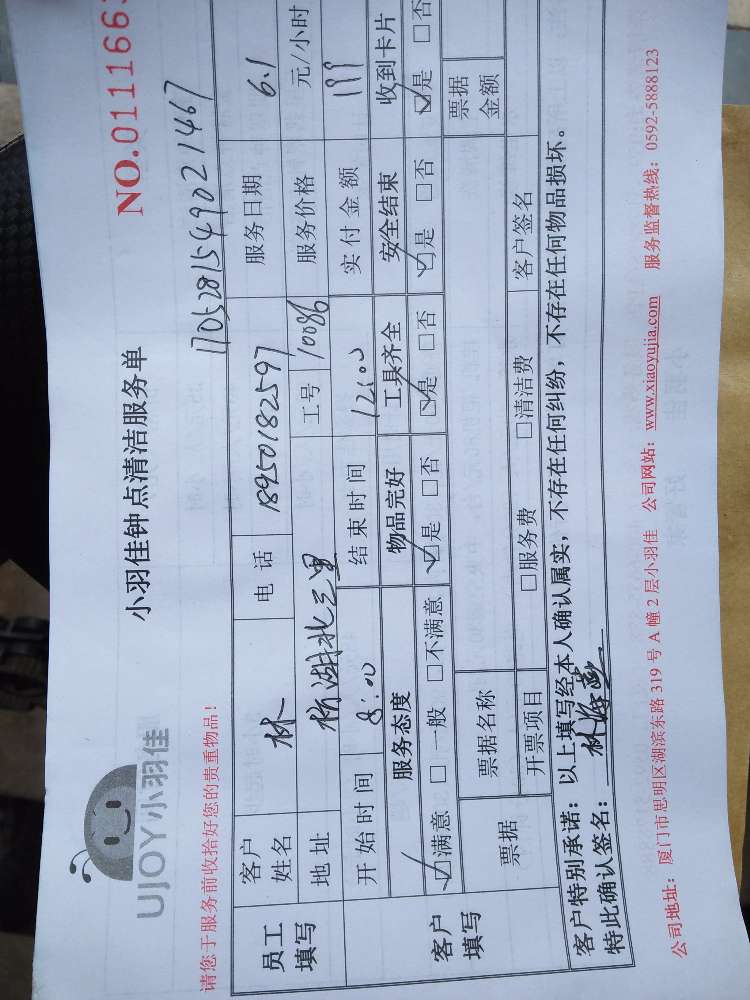 UJOY小羽佳
小羽佳钟点清洁服务单
NO.0111663
请您于服务前收拾好您的贵重物品！
1705281549021467
员工填写 客户姓名 林 电话 18950182597 服务日期 6.1
地址 湖北三里 工号 10086 服务价格 元/小时
开始时间 8:00 结束时间 12:00 实付金额 199
客户填写 服务态度 物品完好 工具齐全 安全结束 收到卡片
☑满意 □一般 □不满意 ☑是 □否 ☑是 □否 ☑是 □否 ☑是 □否
票据 票据名称 票据金额
开票项目 □服务费 □清洁费 客户签名
客户特别承诺：以上填写经本人确认属实，不存在任何纠纷，不存在任何物品损坏。
特此确认签名：林海燕
公司地址：厦门市思明区湖滨东路 319 号 A 幢 2 层小羽佳 公司网站：www.xiaoyujia.com 服务监督热线：0592-5888123